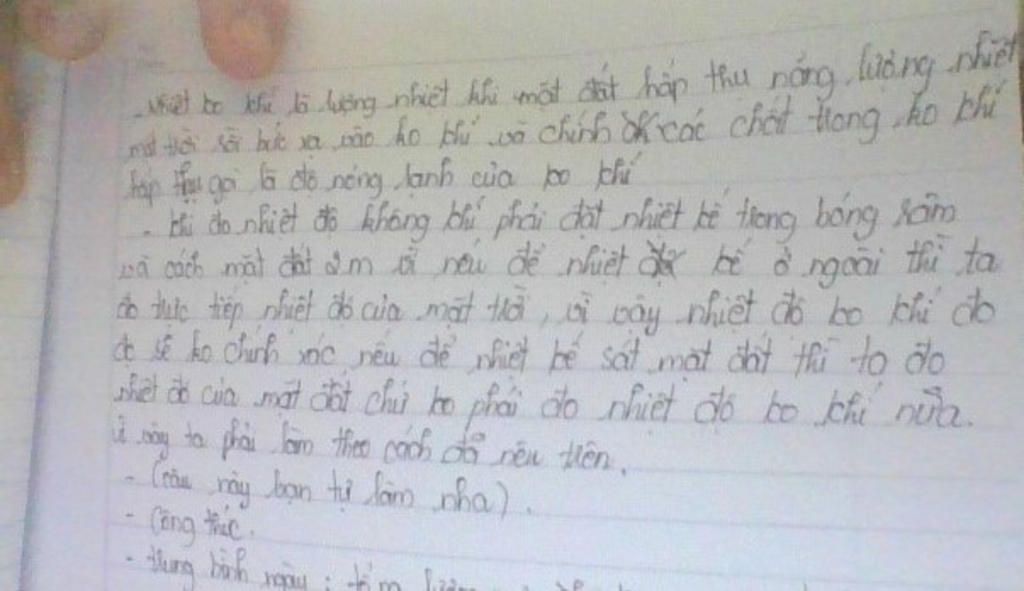 - Nhiệt ko khí là lượng nhiệt khi mặt đất hấp thu năng lượng nhiệt
mặt trời rồi bức xạ vào ko khí và chính các chất trong ko khí
hấp thụ gọi là độ nóng lạnh của ko khí
- Khi đo nhiệt độ không khí phải đặt nhiệt kế trong bóng râm
và cách mặt đất 2m vì nếu để nhiệt kế ở ngoài thì ta
đo trực tiếp nhiệt độ của mặt trời, vì vậy nhiệt độ ko khí đo
đc sẽ ko chính xác nếu để nhiệt kế sát mặt đất thì ta đo
nhiệt độ của mặt đất chứ ko phải đo nhiệt độ ko khí nữa.
vì vậy ta phải làm theo cách đã nêu trên.
- (câu này bạn tự làm nha).
- Công thức.
- trung bình ngày :